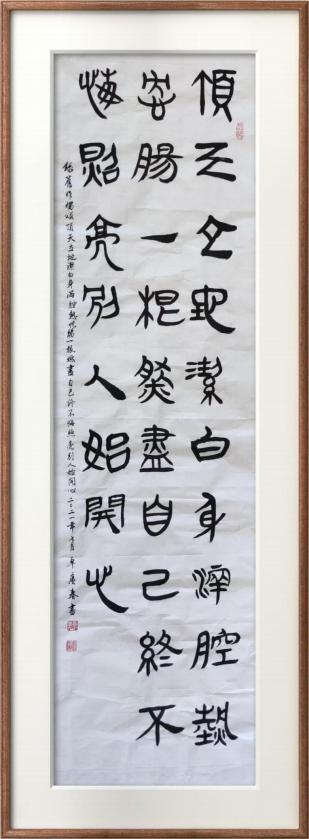 頂天立地潔白身滿腔熱
腸一根燃盡自己終不
悔照亮別人始開心
錄舊作燭頌頂天立地潔白身滿腔熱腸一根燃盡自己終不悔照亮別人始開心二〇二一年七月春書